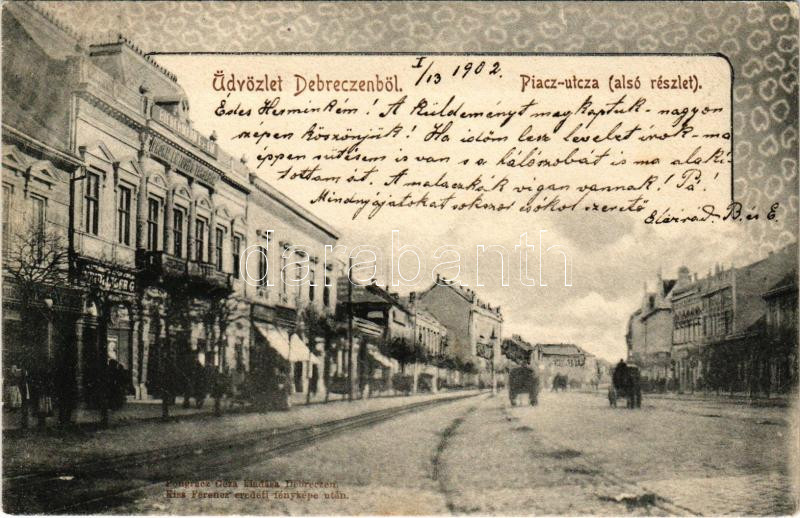 I/13 1902.
Üdvözlet Debreczenböl.
Piacz-utcza (alsó részlet).
Édes Herminkém! A küldeményt megkaptuk - nagyon
szepen köszönjük! Ha időm lesz levelet irok - ma
éppen sütésem is van s a hálószobát is ma alaki-
tottam át. A malaczkák vigan vannak! Pá!
Mindnyájatokat sokszor csókol szerető
B. és E.
darabanth
Pongrácz Géza kiadása Debreczen.
Kiss Ferencz eredeti fényképe után.